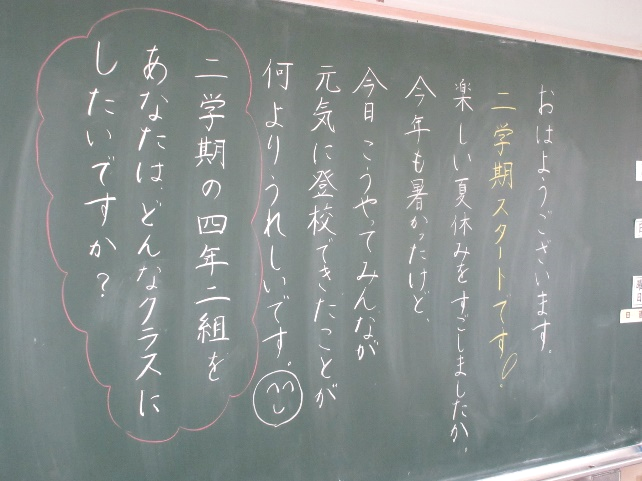 おはようございます。
二学期スタートです!
楽しい夏休みをすごしましたか。
今年も暑かったけど、
今日こうやってみんなが
元気に登校できたことが
何よりうれしいです。
二学期の四年二組を
あなたは、どんなクラスに
したいですか?